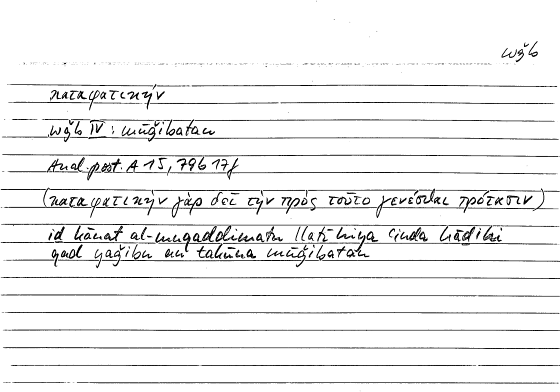 wǧb
καταφατικήν
wǧb IV: mūǧibatan
Anal. post. A 15, 79b 17f
(καταφατικὴν γὰρ δεῖ τὴν πρὸς τοῦτο γενέσθαι πρότασιν)
iḏ kānat al-muqaddimatu llatī hiya ʿinda hāḏihi
qad yaǧibu an takūna mūǧibatan